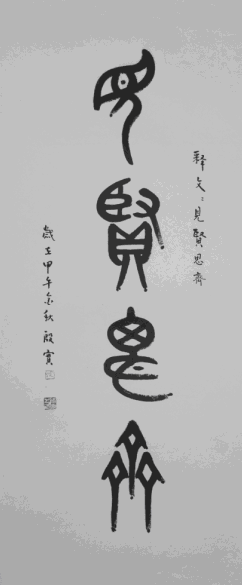 見賢思齊
释文：見賢思齊
歲在甲午金秋殷實